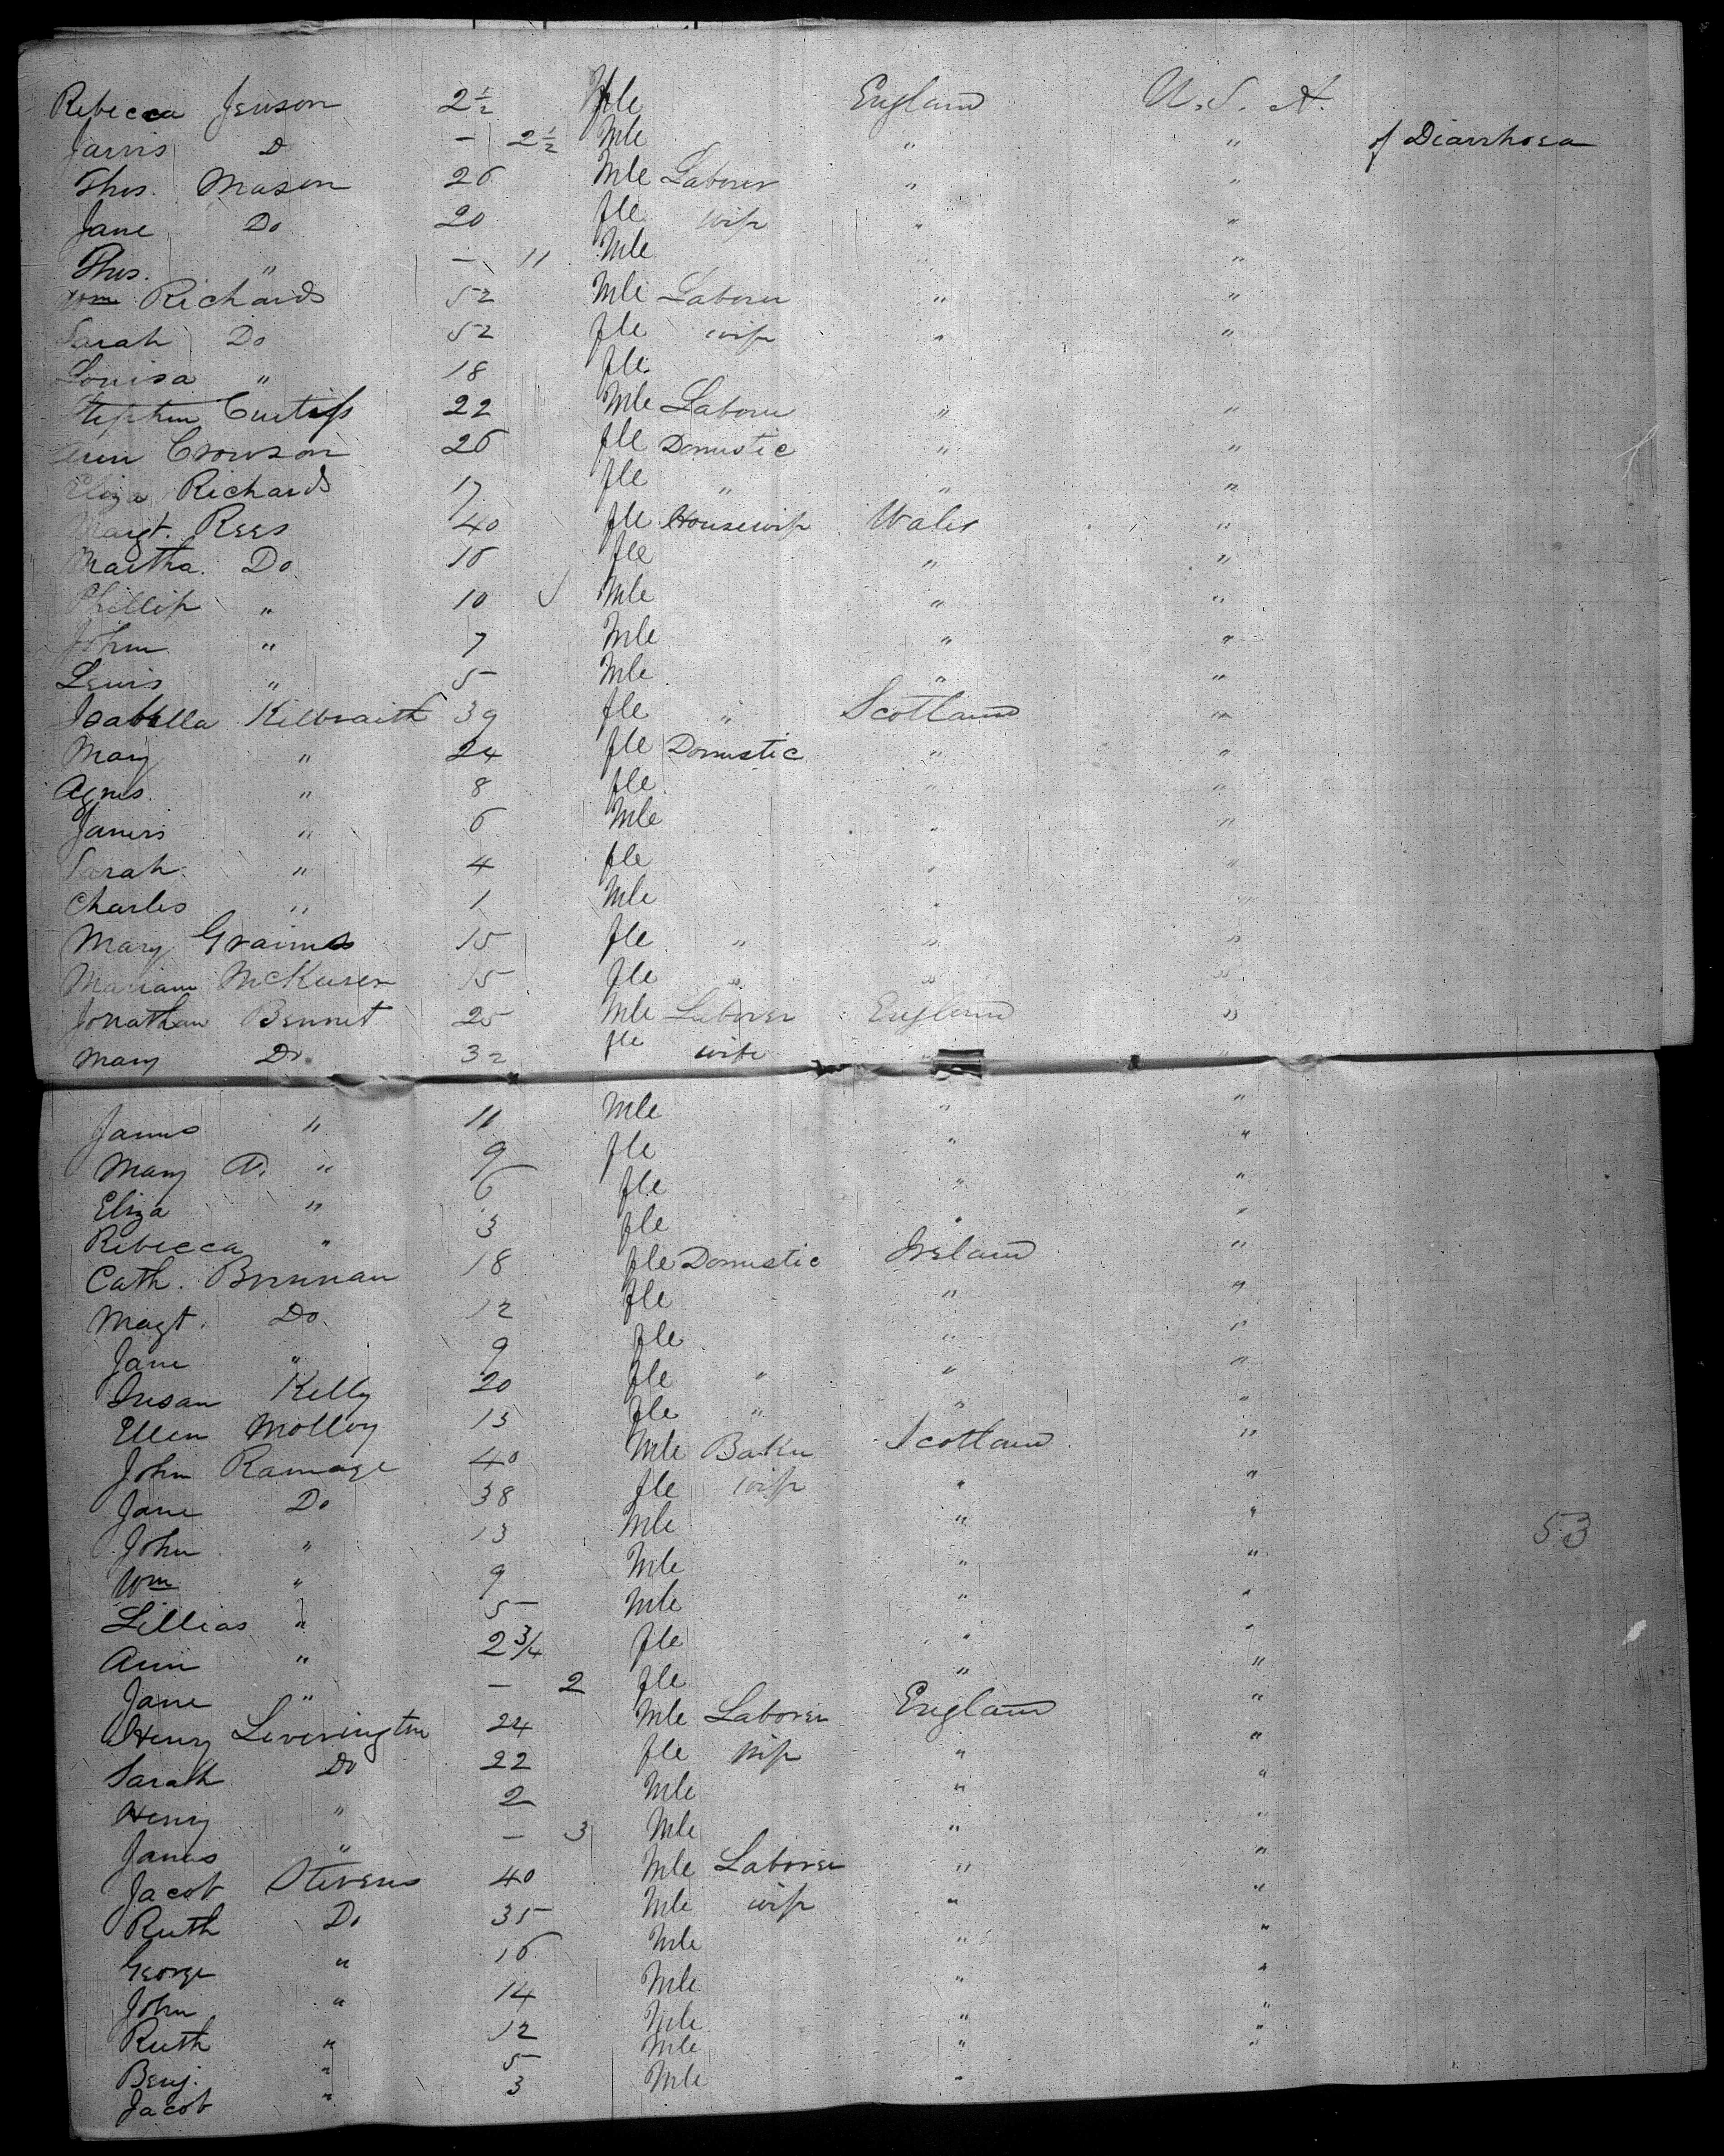 Rebecca Jenson 2½ fle England U.S.A.
Jarvis D - 2½ Mle " " of Diarrhoea
Thos. Mason 26 Mle Laborer " "
Jane Do 20 fle wife " "
Thos. " - 11 Mle " "
Wm Richards 52 Mle Laborer " "
Sarah Do 52 fle wife " "
Louisa " 18 fle
Stephen Curtiss 22 Mle Laborer " "
Ann Crowson 26 fle Domestic " "
Eliza Richards 17 fle " " "
Margt. Rees 40 fle Housewife Wales "
Martha Do 16 fle " "
Phillip " 10 Mle " "
John " 7 Mle " "
Lewis " 5 Mle " "
Isabella Kilbraith 39 fle " Scotland "
Mary " 24 fle Domestic " "
Agnes " 8 fle " "
James " 6 Mle " "
Sarah " 4 fle " "
Charles " 1 Mle " "
Mary Graimes 15 fle " " "
Mariam 15 fle " " "
Jonathan Bennet 25 Mle Laborer England "
Mary Do 32 fle wife " "
James " 11 Mle " "
Mary A. " 9 fle " "
Eliza " 6 fle " "
Rebecca " 3 fle " "
Cath. Brennan 18 fle Domestic Ireland "
Magt. Do 12 fle " "
Jane " 9 fle " "
Susan Kelly 20 fle " " "
Ellen Molloy 13 fle " " "
John Ramage 40 Mle Baker Scotland "
Jane Do 38 fle wife " "
John " 13 Mle " "
Wm " 9 Mle " "
Lillias " 5 Mle " "
Ann " 2¾ fle " "
Jane " - 2 fle " "
Henry Leverington 24 Mle Laborer England "
Sarah Do 22 fle wife " "
Henry " 2 Mle " "
James " - 3 Mle " "
Jacob Stevens 40 Mle Laborer " "
Ruth Do 35 Mle wife " "
George " 16 Mle " "
John " 14 Mle " "
Ruth " 12 Mle " "
Benj. " 5 Mle " "
Jacob " 3 Mle "
53